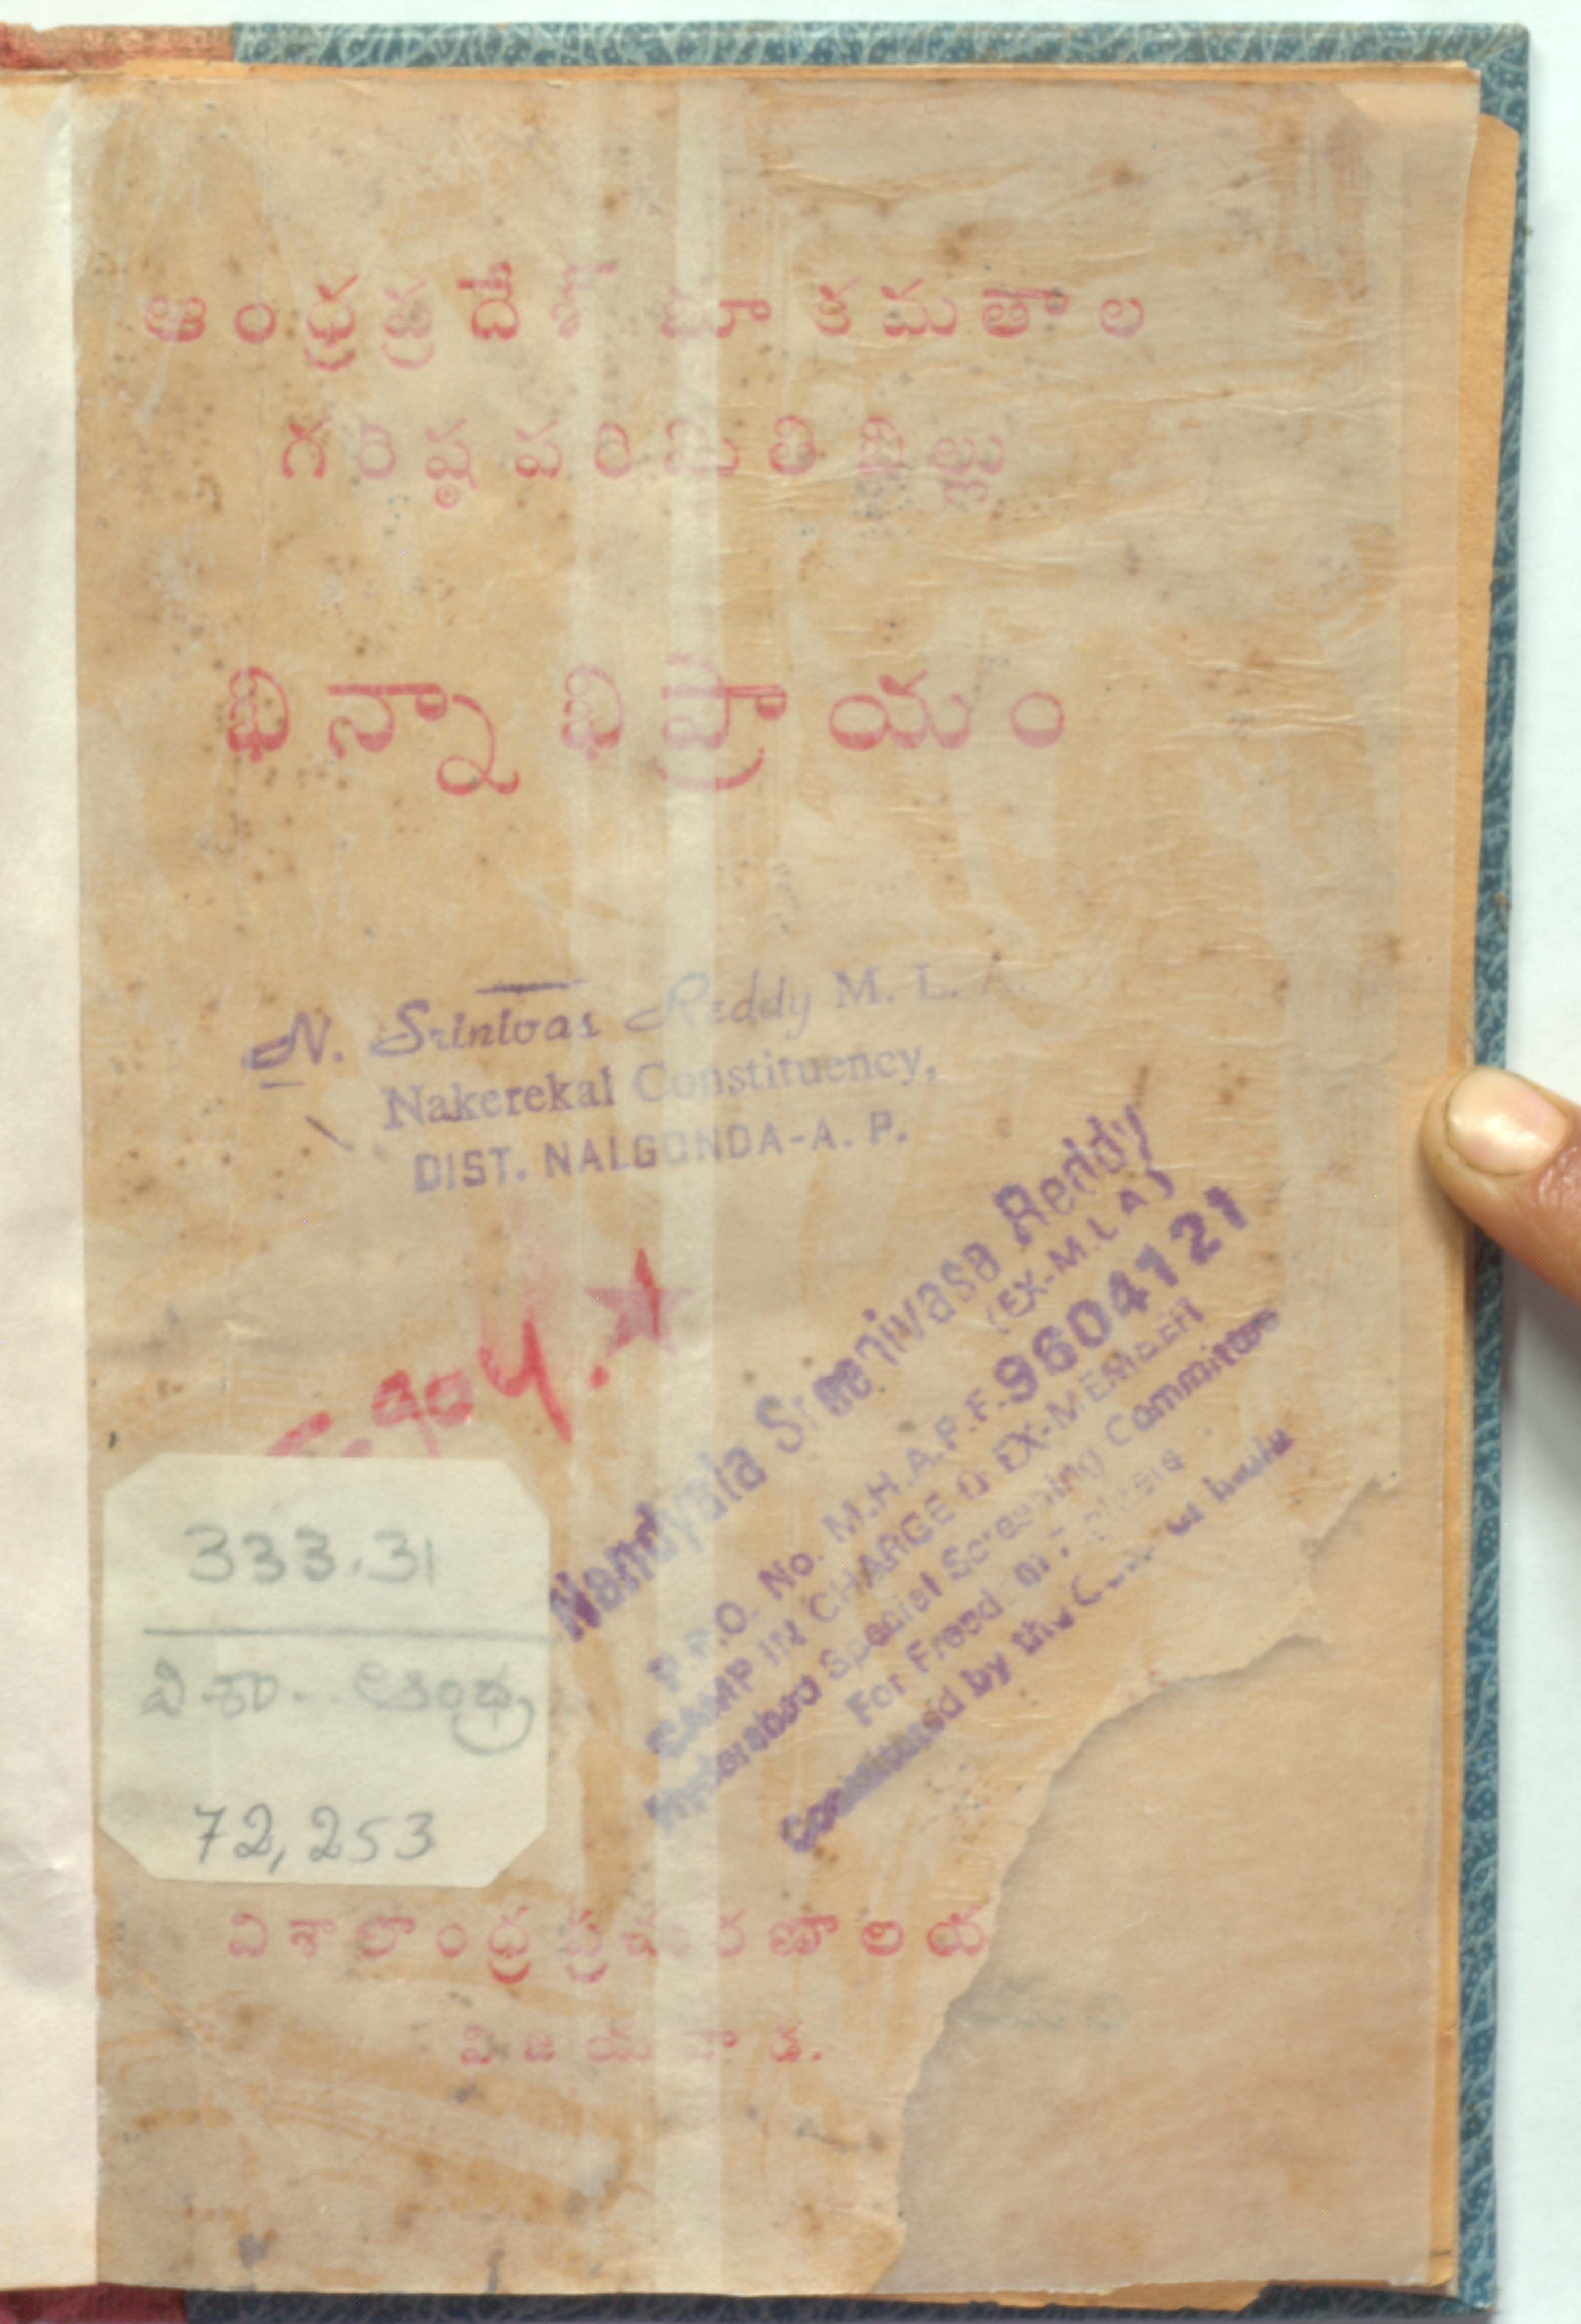 ఆంధ్రప్రదేశ్ భూకమతాల
గరిష్ఠపరిమితి బిల్లు
భిన్నాభిప్రాయం
N. Srinivas Reddy M. L. A.
Nakerekal Constituency,
DIST. NALGONDA-A. P.
Nandyala Sreenivasa Reddy
(EX-M.L.A)
P.P.O. No. M.H.A.P.F.9604121
CAMP IN CHARGE & EX-MEMBER
Hyderabad Special Screening Committee
For Freedom
Constituted by the
333.31
వి.శా.. ఆంధ్ర
72,253
విశాలాంధ్రప్రచురణాలయ
విజయవాడ.